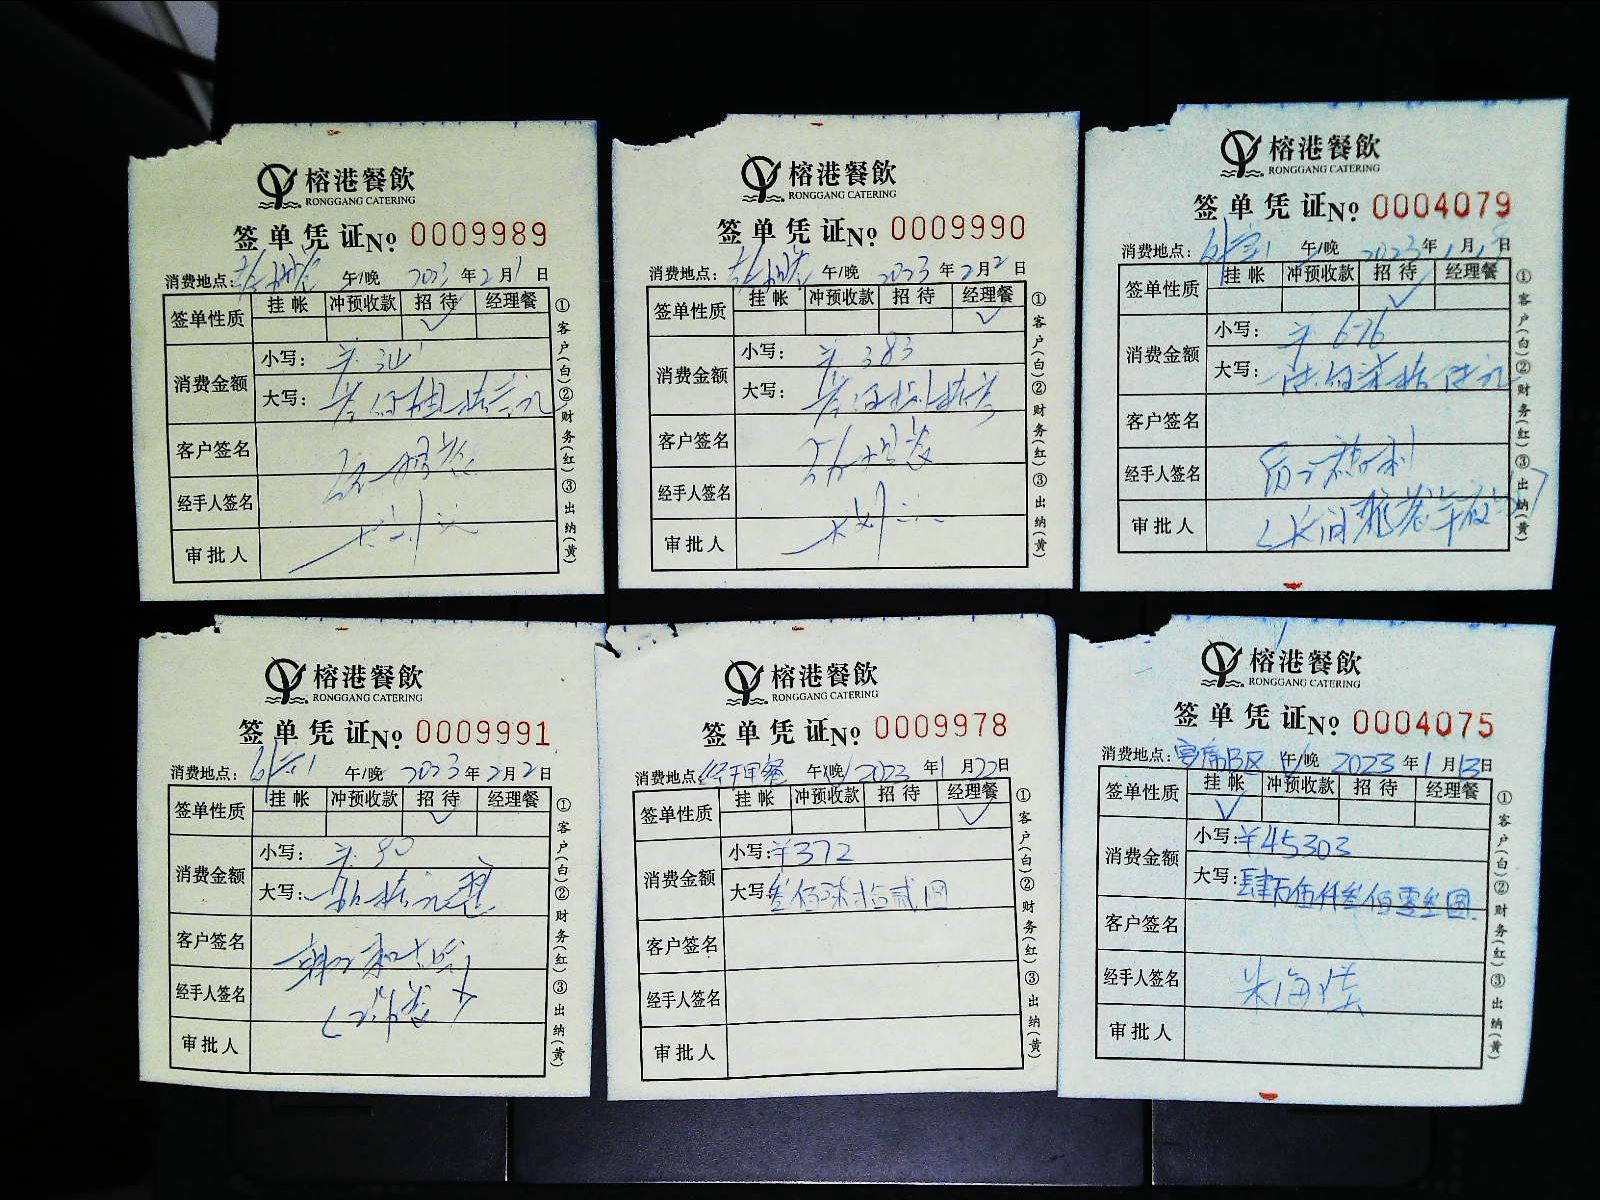 榕港餐飲
RONGGANG CATERING
签单凭证No 0009989
消费地点: 午/晚 2023年2月1日
签单性质 挂帐 冲预收款 招待 经理餐
✓
消费金额 小写:
大写:
客户签名
经手人签名
审批人
①客户(白)②财务(红)③出纳(黄)
榕港餐飲
RONGGANG CATERING
签单凭证No 0009990
消费地点: 午/晚 2023年2月2日
签单性质 挂帐 冲预收款 招待 经理餐
✓
消费金额 小写: ¥383
大写: 叁佰捌拾叁
客户签名
经手人签名
审批人
①客户(白)②财务(红)③出纳(黄)
榕港餐飲
RONGGANG CATERING
签单凭证No 0004079
消费地点: 午/晚 2023年1月 日
签单性质 挂帐 冲预收款 招待 经理餐
✓
消费金额 小写: ¥676
大写: 陆佰柒拾陆元
客户签名
经手人签名
审批人
①客户(白)②财务(红)③出纳(黄)
榕港餐飲
RONGGANG CATERING
签单凭证No 0009991
消费地点: 午/晚 2023年2月2日
签单性质 挂帐 冲预收款 招待 经理餐
✓
消费金额 小写: ¥90
大写: 玖拾元整
客户签名
经手人签名
审批人
①客户(白)②财务(红)③出纳(黄)
榕港餐飲
RONGGANG CATERING
签单凭证No 0009978
消费地点: 经理餐 午/晚 2023年1月22日
签单性质 挂帐 冲预收款 招待 经理餐
✓
消费金额 小写: ¥372
大写: 叁佰柒拾贰圆
客户签名
经手人签名
审批人
①客户(白)②财务(红)③出纳(黄)
榕港餐飲
RONGGANG CATERING
签单凭证No 0004075
消费地点: 宴席B区 午/晚 2023年1月13日
签单性质 挂帐 冲预收款 招待 经理餐
✓
消费金额 小写: ¥45303
大写: 肆万伍仟叁佰零叁圆
客户签名
经手人签名
审批人
①客户(白)②财务(红)③出纳(黄)